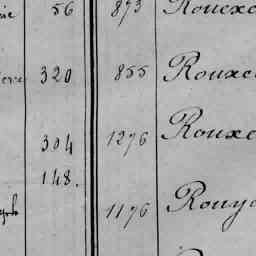 56 873 Rouex
320 855 Roux
304 1276 Roux
148.
1176 Rouy